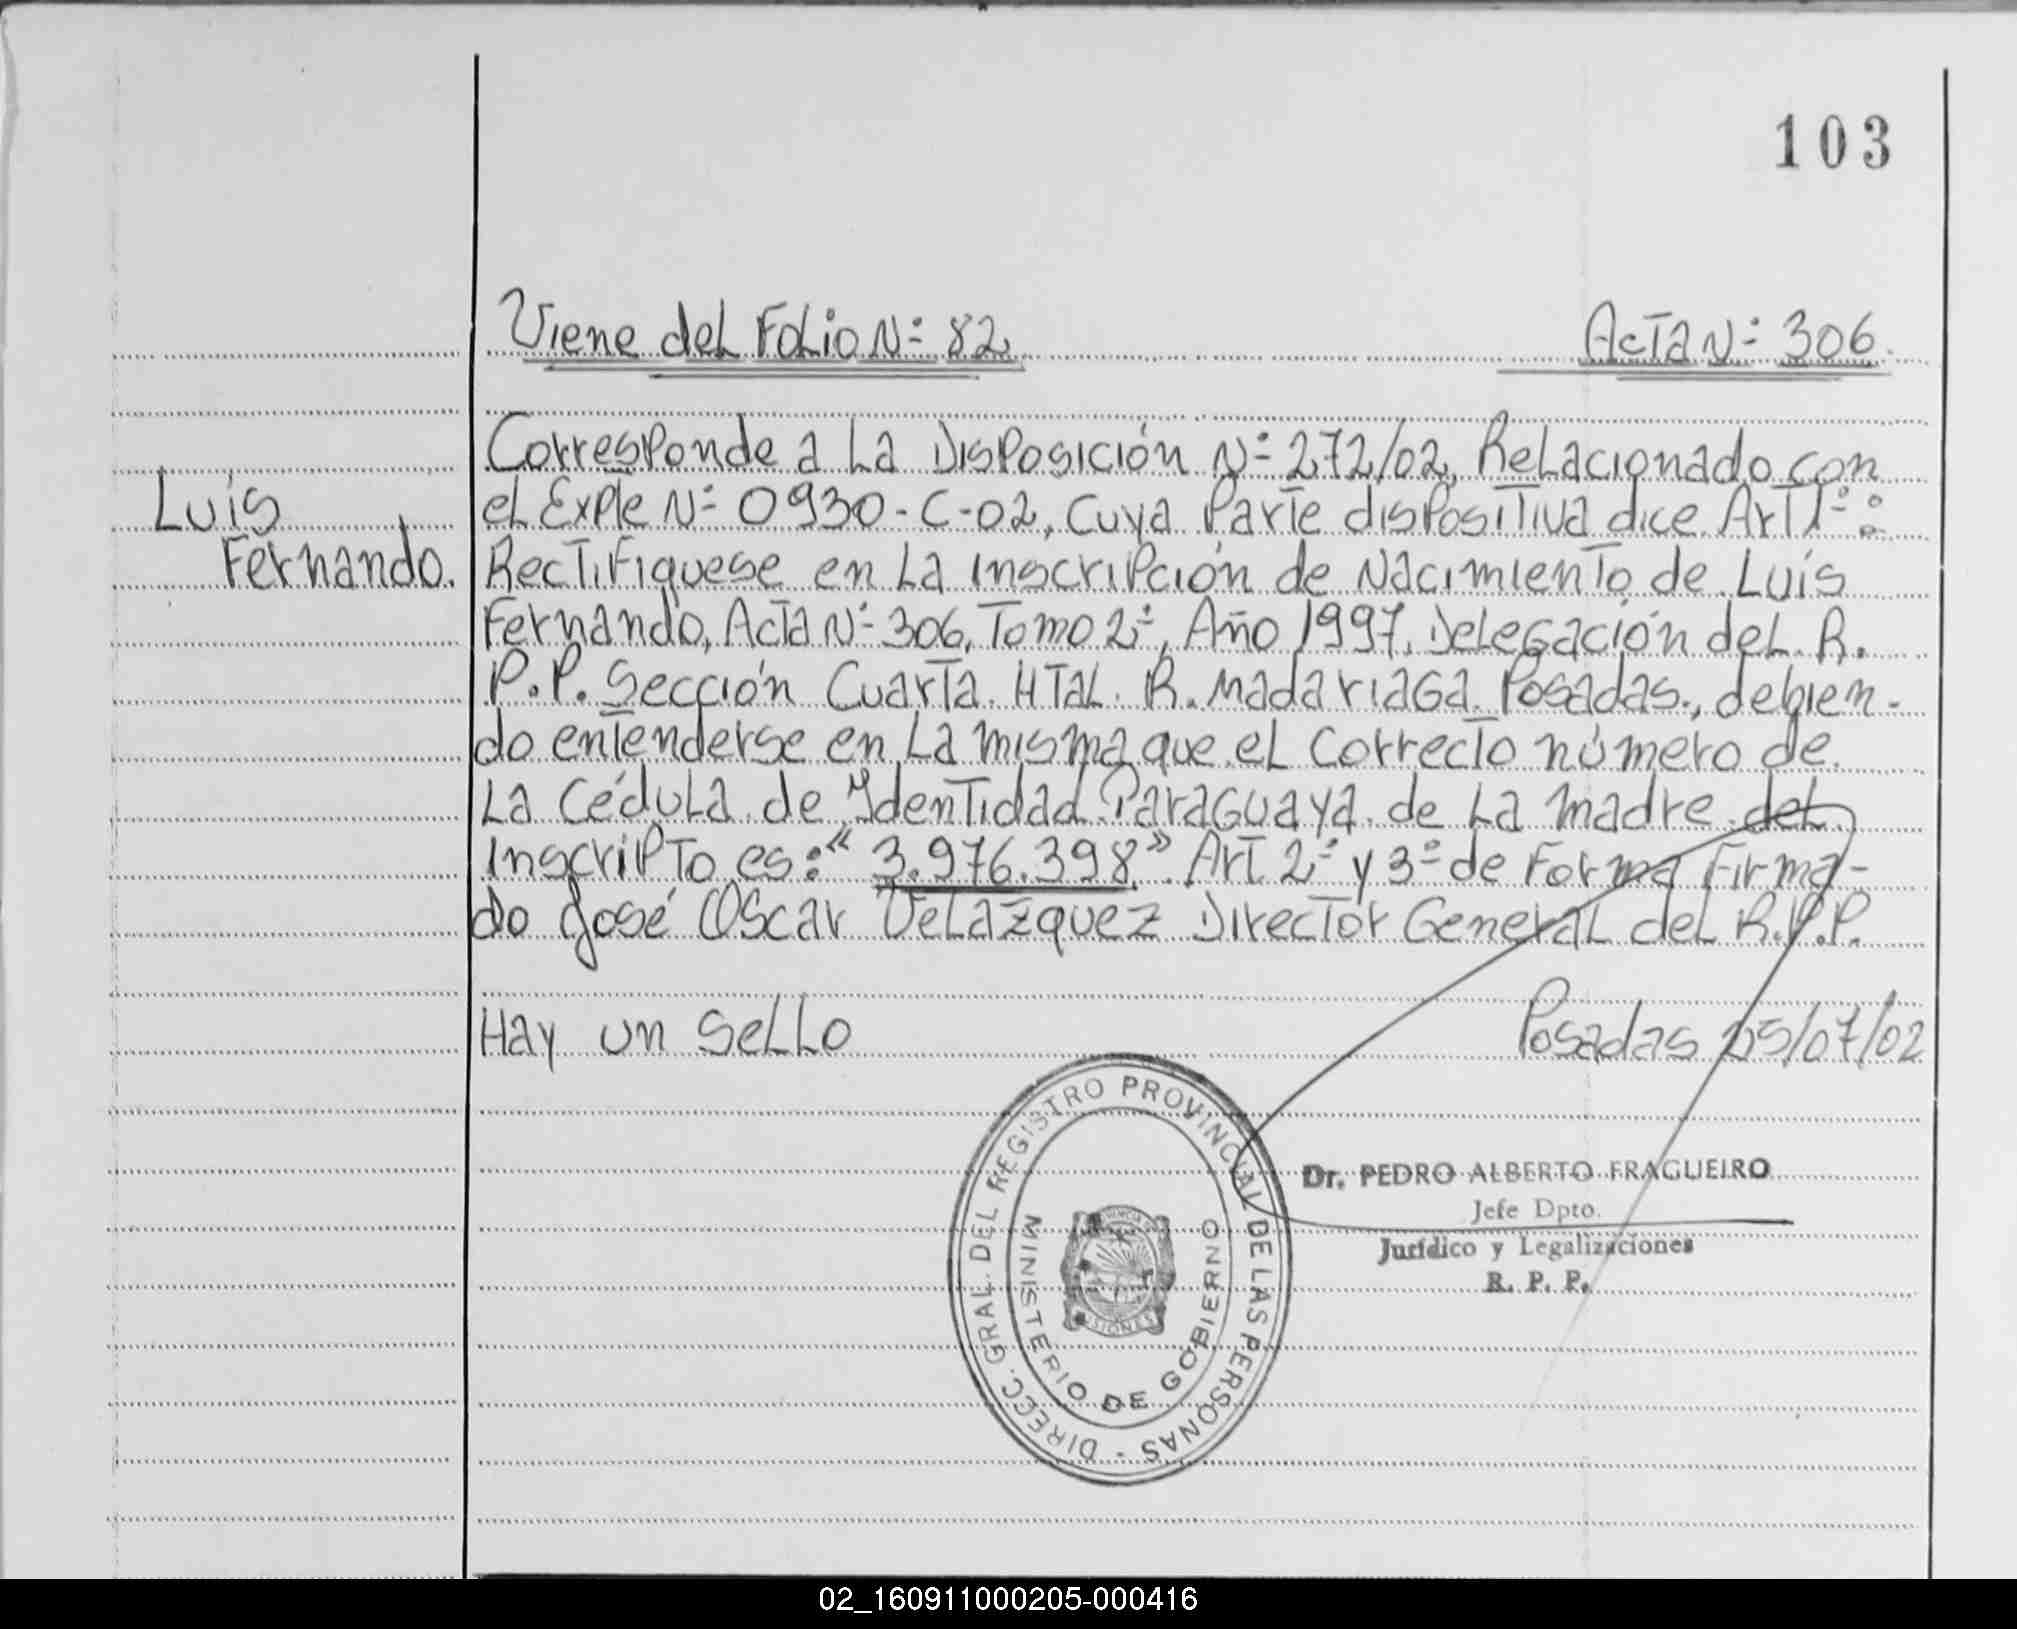 103
Viene del Folio Nº 82
Acta Nº 306.
Corresponde a la Disposición Nº 272/02, Relacionado con
Luis
el Expte Nº 0930-C-02, cuya Parte dispositiva dice Art 1º:
Fernando.
Rectifiquese en la inscripción de Nacimiento de Luis
Fernando, Acta Nº 306, Tomo 2º, Año 1997, Delegación del R.
P.P. Sección Cuarta. Htal. R. Madariaga Posadas., debien-
do entenderse en la misma que el correcto número de
la Cédula de Identidad Paraguaya de la madre del
Inscripto es: "3.976.398" Art. 2º y 3º de Forma Firma-
do José Oscar Velazquez Director General del R.P.P.
Hay un sello
Posadas 25/07/02
DIRECC. GRAL. DEL REGISTRO PROVINCIAL DE LAS PERSONAS -
MINISTERIO DE GOBIERNO
Dr. PEDRO ALBERTO FRAGUEIRO
Jefe Dpto.
Jurídico y Legalizaciones
R. P. P.
02_160911000205-000416